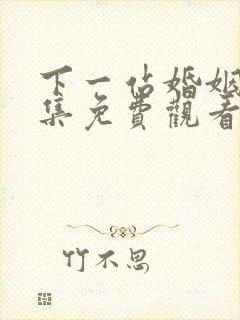 下一佔婚姻
集免費觀看
竹不思